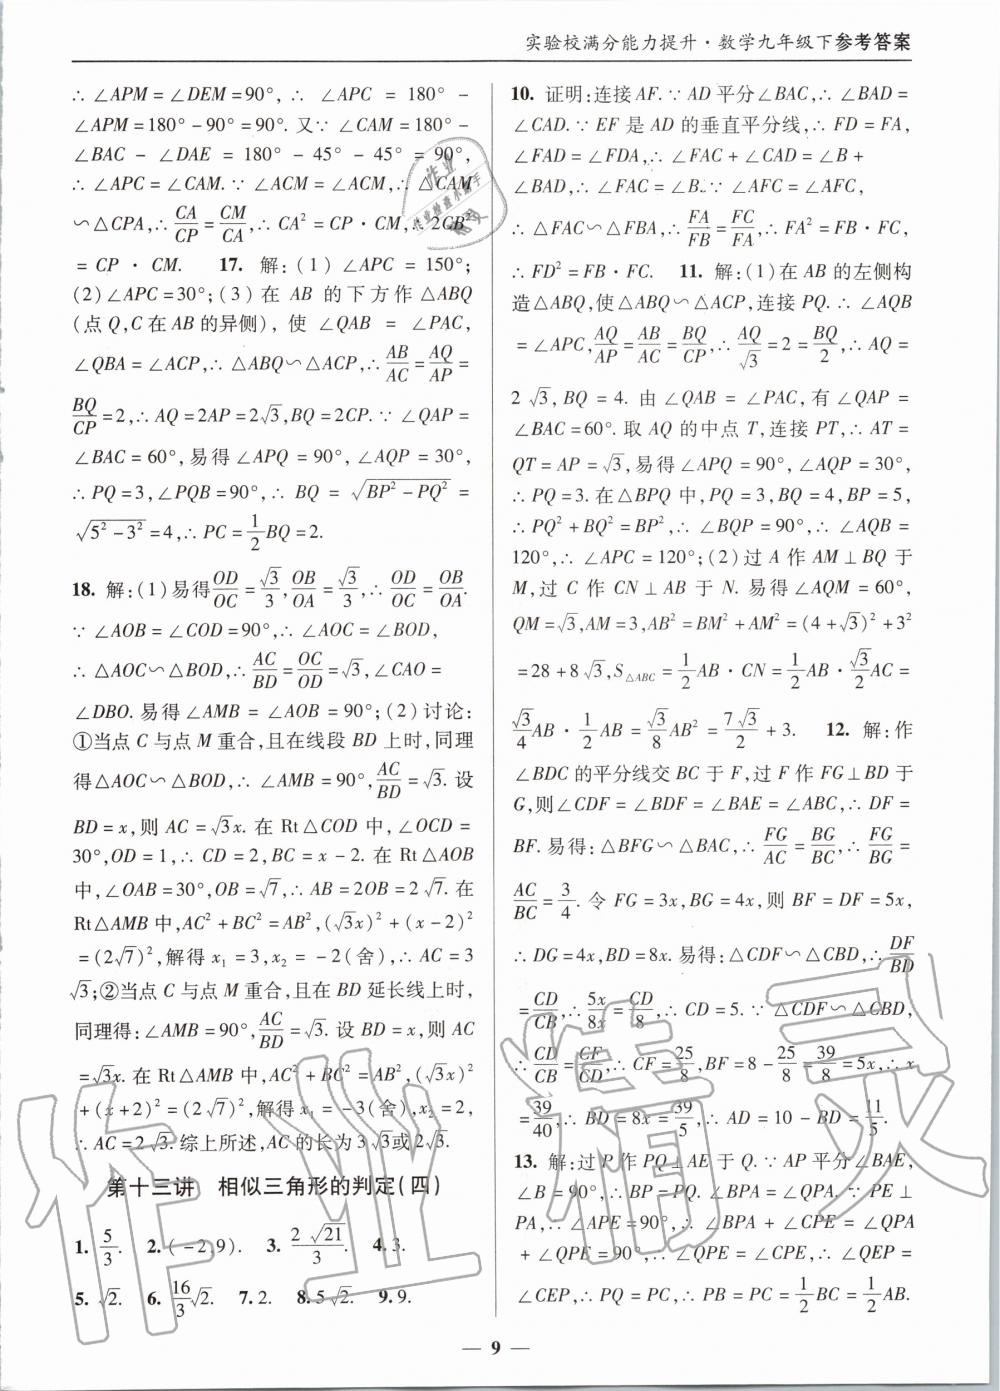 实验校满分能力提升·数学九年级下参考答案
∴∠APM=∠DEM=90°,∴∠APC=180°-
∠APM=180°-90°=90°.又∵∠CAM=180°-
∠BAC-∠DAE=180°-45°-45°=90°,
∴∠APC=∠CAM.∵∠ACM=∠ACM,∴△CAM
∽△CPA,∴CA/CP=CM/CA,∴CA²=CP·CM,∴2CB²
=CP·CM. 17. 解:(1)∠APC=150°;
(2)∠APC=30°;(3)在AB的下方作△ABQ
(点Q,C在AB的异侧),使∠QAB=∠PAC,
∠QBA=∠ACP,∴△ABQ∽△ACP,∴AB/AC=AQ/AP=
BQ/CP=2,∴AQ=2AP=2√3,BQ=2CP.∵∠QAP=
∠BAC=60°,易得∠APQ=90°,∠AQP=30°,
∴PQ=3,∠PQB=90°,∴BQ=√(BP²-PQ²)=
√(5²-3²)=4,∴PC=1/2BQ=2.
18. 解:(1)易得OD/OC=√3/3,OB/OA=√3/3,∴OD/OC=OB/OA.
∵∠AOB=∠COD=90°,∴∠AOC=∠BOD,
∴△AOC∽△BOD,∴AC/BD=OC/OD=√3,∠CAO=
∠DBO.易得∠AMB=∠AOB=90°;(2)讨论:
①当点C与点M重合,且在线段BD上时,同理
得△AOC∽△BOD,∴∠AMB=90°,AC/BD=√3.设
BD=x,则AC=√3x.在Rt△COD中,∠OCD=
30°,OD=1,∴CD=2,BC=x-2.在Rt△AOB
中,∠OAB=30°,OB=√7,∴AB=2OB=2√7.在
Rt△AMB中,AC²+BC²=AB²,(√3x)²+(x-2)²
=(2√7)²,解得x₁=3,x₂=-2(舍),∴AC=3
√3;②当点C与点M重合,且在BD延长线上时,
同理得:∠AMB=90°,AC/BD=√3.设BD=x,则AC
=√3x.在Rt△AMB中,AC²+BC²=AB²,(√3x)²
+(x+2)²=(2√7)²,解得x₁=-3(舍),x₂=2,
∴AC=2√3.综上所述,AC的长为3√3或2√3.
第十三讲 相似三角形的判定(四)
1. 5/3. 2.(-2,9). 3. 2√21/3. 4.3.
5. √2. 6. 16/3√2. 7.2. 8.5√2. 9.9.
10. 证明:连接AF.∵AD平分∠BAC,∴∠BAD=
∠CAD.∵EF是AD的垂直平分线,∴FD=FA,
∠FAD=∠FDA,∴∠FAC+∠CAD=∠B+
∠BAD,∴∠FAC=∠B.∵∠AFC=∠AFC,
∴△FAC∽△FBA,∴FA/FB=FC/FA,∴FA²=FB·FC,
∴FD²=FB·FC. 11. 解:(1)在AB的左侧构
造△ABQ,使△ABQ∽△ACP,连接PQ.∴∠AQB
=∠APC,AQ/AP=AB/AC=BQ/CP,∴AQ/√3=2=BQ/2,∴AQ=
2√3,BQ=4.由∠QAB=∠PAC,有∠QAP=
∠BAC=60°.取AQ的中点T,连接PT,∴AT=
QT=AP=√3,易得∠APQ=90°,∠AQP=30°,
∴PQ=3.在△BPQ中,PQ=3,BQ=4,BP=5,
∴PQ²+BQ²=BP²,∴∠BQP=90°,∴∠AQB=
120°,∴∠APC=120°;(2)过A作AM⊥BQ于
M,过C作CN⊥AB于N.易得∠AQM=60°,
QM=√3,AM=3,AB²=BM²+AM²=(4+√3)²+3²
=28+8√3,S△ABC=1/2AB·CN=1/2AB·√3/2AC=
√3/4AB·1/2AB=√3/8AB²=7√3/2+3. 12. 解:作
∠BDC的平分线交BC于F,过F作FG⊥BD于
G,则∠CDF=∠BDF=∠BAE=∠ABC,∴DF=
BF.易得:△BFG∽△BAC,∴FG/AC=BG/BC,∴FG/BG=
AC/BC=3/4.令FG=3x,BG=4x,则BF=DF=5x,
∴DG=4x,BD=8x.易得:△CDF∽△CBD,∴DF/BD
=CD/CB,∴5x/8x=CD/8,∴CD=5.∵△CDF∽△CBD,
∴CD/CB=CF/CD,∴CF=25/8,BF=8-25/8=39/8=5x,∴x
=39/40,∴BD=8x=39/5,∴AD=10-BD=11/5.
13. 解:过P作PQ⊥AE于Q.∵AP平分∠BAE,
∠B=90°,∴BP=PQ.∵PE⊥
PA,∴∠APE=90°,∴∠BPA+∠CPE=∠QPA
+∠QPE=90°,∴∠QPE=∠CPE,∴∠QEP=
∠CEP,∴PQ=PC,∴PB=PC=1/2BC=1/2AB.
— 9 —
作业精灵